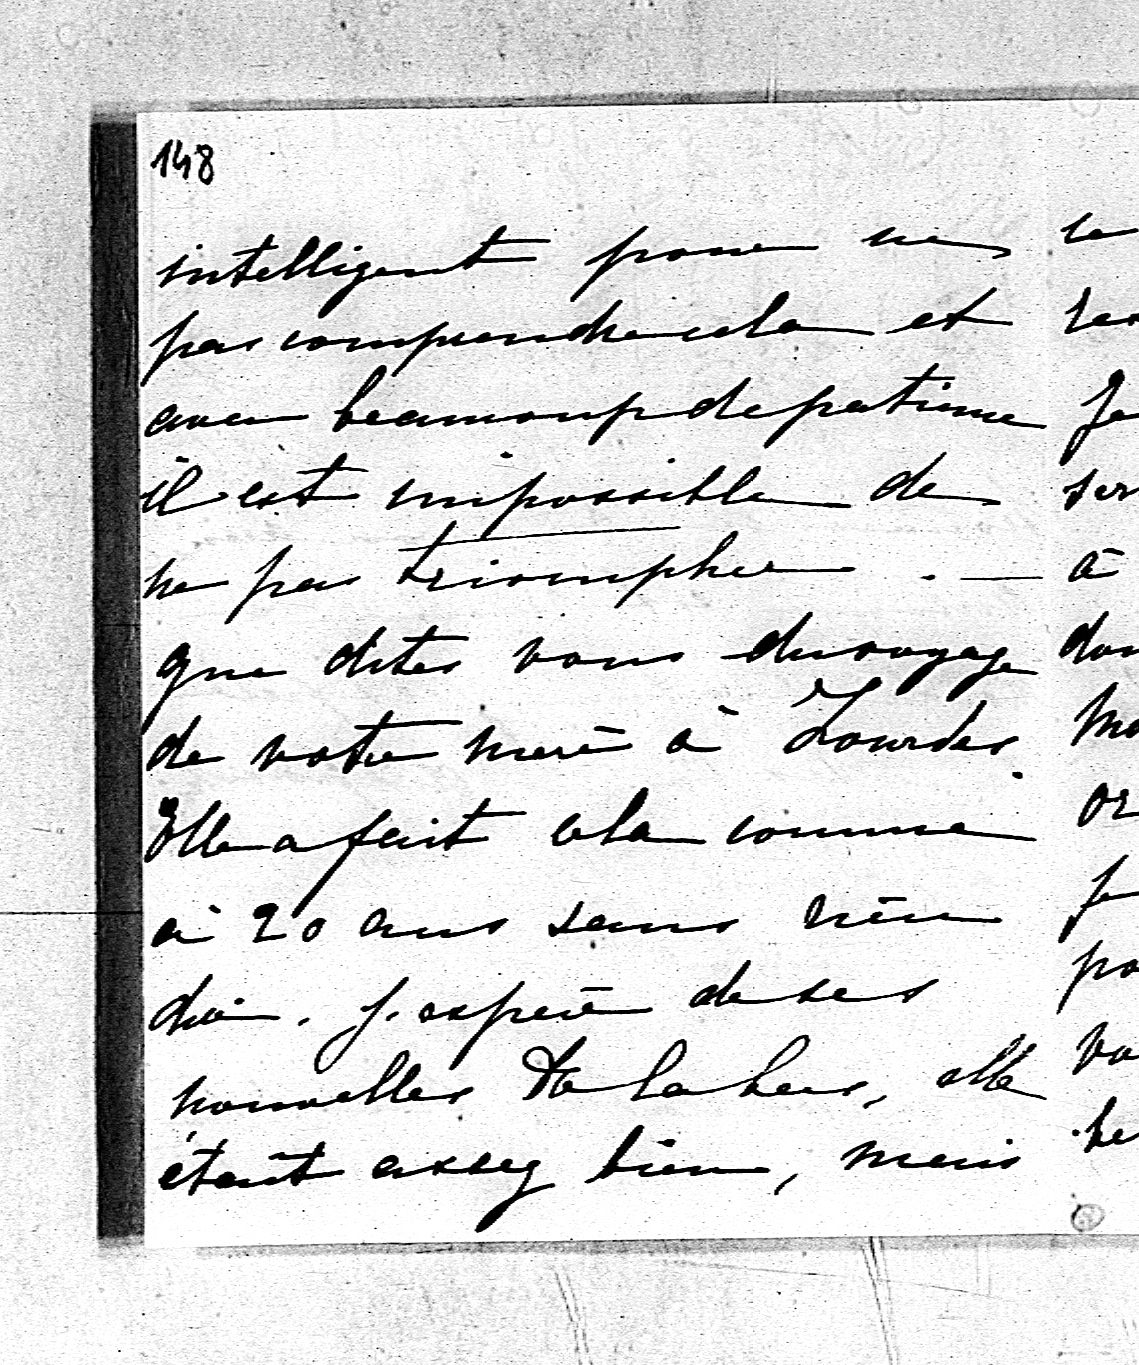 148
intelligent pour ne
pas comprendre cela et
avec beaucoup de patience
il est impossible de
ne pas triompher . —
que dites vous du voyage
de votre mère à Lourdes
Elle a fait cela comme
à 20 ans sans rien
dire. J'espère de ses
nouvelles de là bas, elle
était assez bien, mais